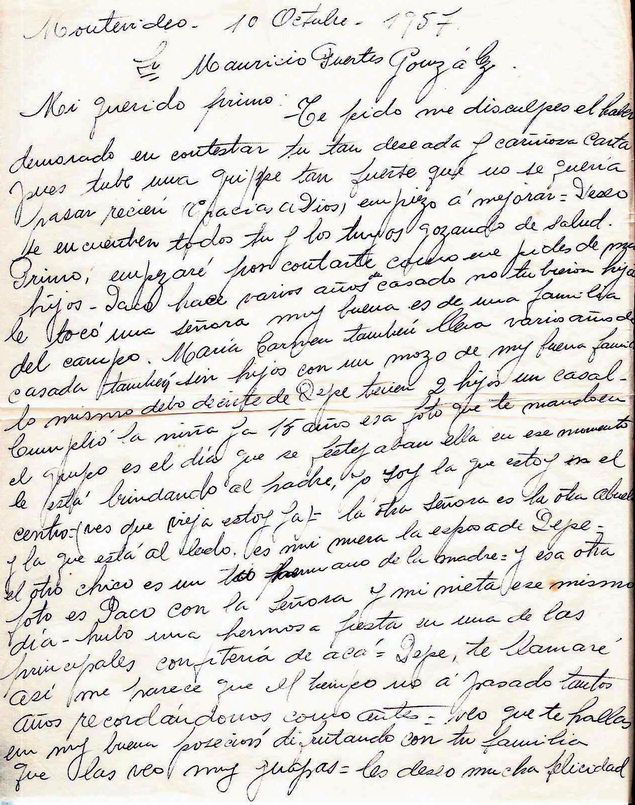 Montevideo - 10 Octubre - 1957.
Sr Mauricio Fuertes González.
Mi querido primo: Te pido me disculpes el haber
demorado en contestar tu tan deseada y cariñosa carta
pues tube una grippe tan fuerte que no se queria
pasar recien Gracias a Dios, empiezo á mejorar = Deseo
se encuentren todos tu y los tuyos gozando de salud.
Primo, empezaré por contarte como me pides de mis
hijos - Paco hace varios años casado no tubieron hijos
le tocó una señora muy buena es de una familia
del campo. María Carmen tambien lleva varios años de
casada tambien sin hijos con un mozo de muy buena familia
lo mismo debo decirte de Pepe tienen 2 hijos un casal -
Cumplió la niña ya 15 años esa foto que te mando en
el grupo es el día que se festejaban ella en ese momento
le está brindando al padre, yo soy la que estoy en el
centro - (ves que vieja estoy ya) = la otra señora es la otra abuela
y la que está al lado. es mi nuera la esposa de Pepe =
el otro chico es un hermano de la madre = y esa otra
foto es Paco con la Señora y mi nieta ese mismo
día - hubo una hermosa fiesta en una de las
principales confitería de aca = Pepe, te llamaré
así me parece que el tiempo no á pasado tantos
años recordándonos como antes = veo que te hallas
en muy buena posecion difrutando con tu familia
que las veo muy guapas = les deseo mucha felicidad